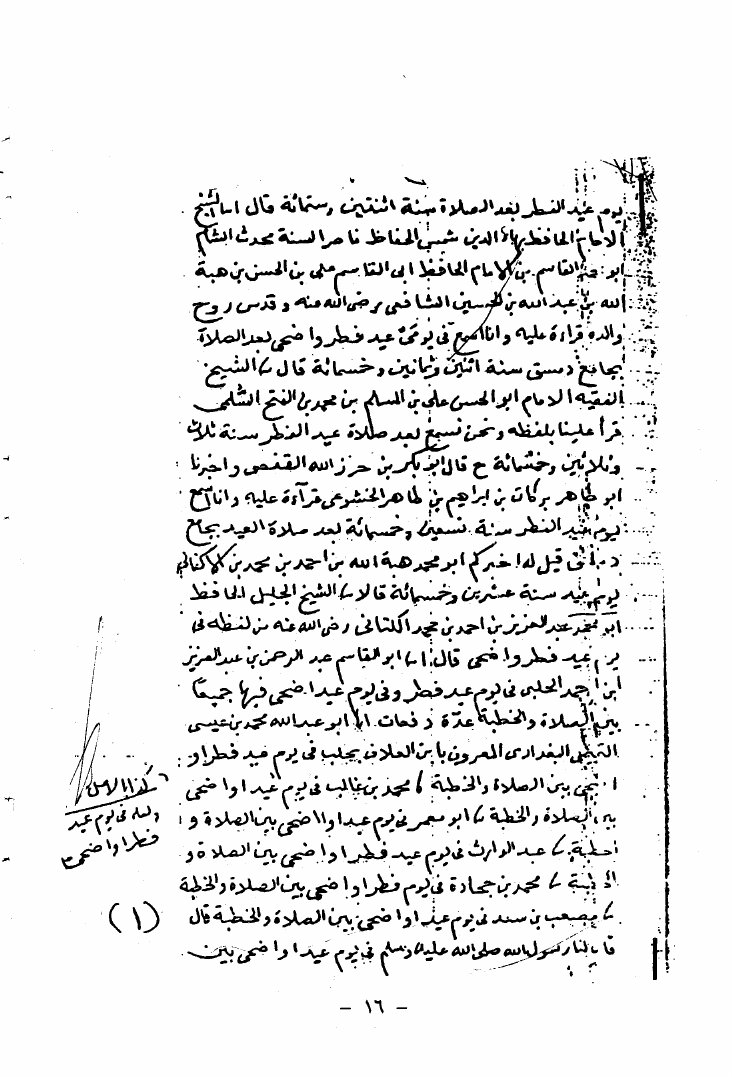 يوم عيد الفطر بعد الصلاة سنة اثنتين وستمائة قال انا الشيخ
الامام الحافظ بهاء الدين شمس الحفاظ ناصر السنة محدث الشام
ابو محمد القاسم بن الامام الحافظ ابي القاسم علي بن الحسن بن هبة
الله بن عبد الله بن الحسين الشافعي رضي الله عنه وقدس روح
والده قراءة عليه وانا اسمع في يومي عيد فطر واضحى بعد الصلاة
بجامع دمشق سنة اثنين وثمانين وخمسمائة قال نا الشيخ
الفقيه الامام ابو الحسن علي بن المسلم بن محمد بن الفتح السلمي
قرأ علينا بلفظه ونحن نسمع بعد صلاة عيد الفطر سنة ثلاث
وثلاثين وخمسمائة ح قال ابو بكر بن حرز الله القفصي واخبرنا
ابو طاهر بركات بن ابراهيم بن طاهر الخشوعي قراءة عليه وانا اسمع
يوم عيد الفطر سنة تسعين وخمسمائة بعد صلاة العيد بجامع
دمشق قيل له اخبركم ابو محمد هبة الله بن احمد بن محمد بن الاكفاني
يوم عيد سنة عشرين وخمسمائة قالا نا الشيخ الجليل الحافظ
ابو محمد عبد العزيز بن احمد بن محمد الكتاني رضي الله عنه من لفظه في
يوم عيد فطر واضحى قال انا ابو القاسم عبد الرحمن بن عبد العزيز
ابن احمد الحلبي في يوم عيد فطر وفي يوم عيد اضحى فيها جميعا
بين الصلاة والخطبة عدة دفعات انا ابو عبد الله محمد بن عيسى
التميمي البغدادي المعروف بابن العلاف بحلب في يوم عيد فطر او
اضحى بين الصلاة والخطبة نا محمد بن غالب في يوم عيد او اضحى
بين الصلاة والخطبة نا ابو معمر في يوم عيد او اضحى بين الصلاة وا
لخطبة نا عبد الوارث في يوم عيد فطر او اضحى بين الصلاة و
الخطبة نا محمد بن جحادة في يوم فطر او اضحى بين الصلاة والخطبة
نا مصعب بن سعد في يوم عيد او اضحى بين الصلاة والخطبة قال
قال لنا رسول الله صلى الله عليه وسلم في يوم عيد او اضحى بين
كذا الاصل
ولعله في يوم عيد
فطر او اضحى
(١)
- ١٦ -